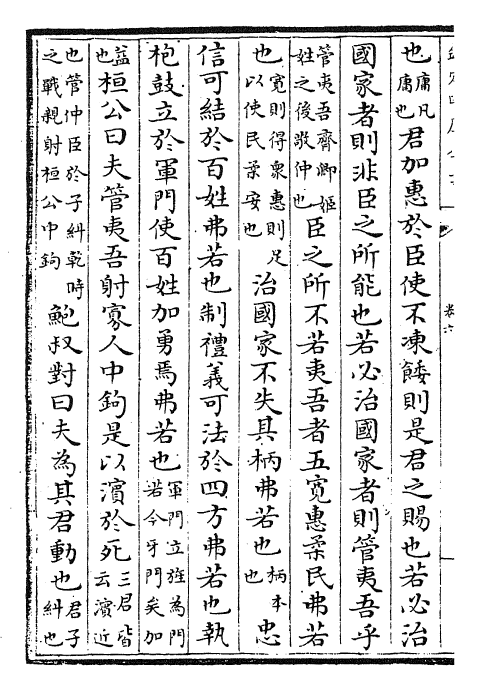 也庸凡庸也君加惠於臣使不凍餒則是君之賜也若必治
國家者則非臣之所能也若必治國家者則管夷吾乎
管夷吾齊卿姬姓之後敬仲也臣之所不若夷吾者五寬惠柔民弗若
也寬則得衆惠則足以使民柔安也治國家不失其柄弗若也柄本也忠
信可結於百姓弗若也制禮義可法於四方弗若也執
枹鼓立於軍門使百姓加勇焉弗若也軍門立旌為門若今牙門矣加
益也桓公曰夫管夷吾射寡人中鉤是以濱於死三君皆云濱近
也管仲臣於子糾乾時之戰親射桓公中鉤鮑叔對曰夫為其君動也君子糾也
卷六